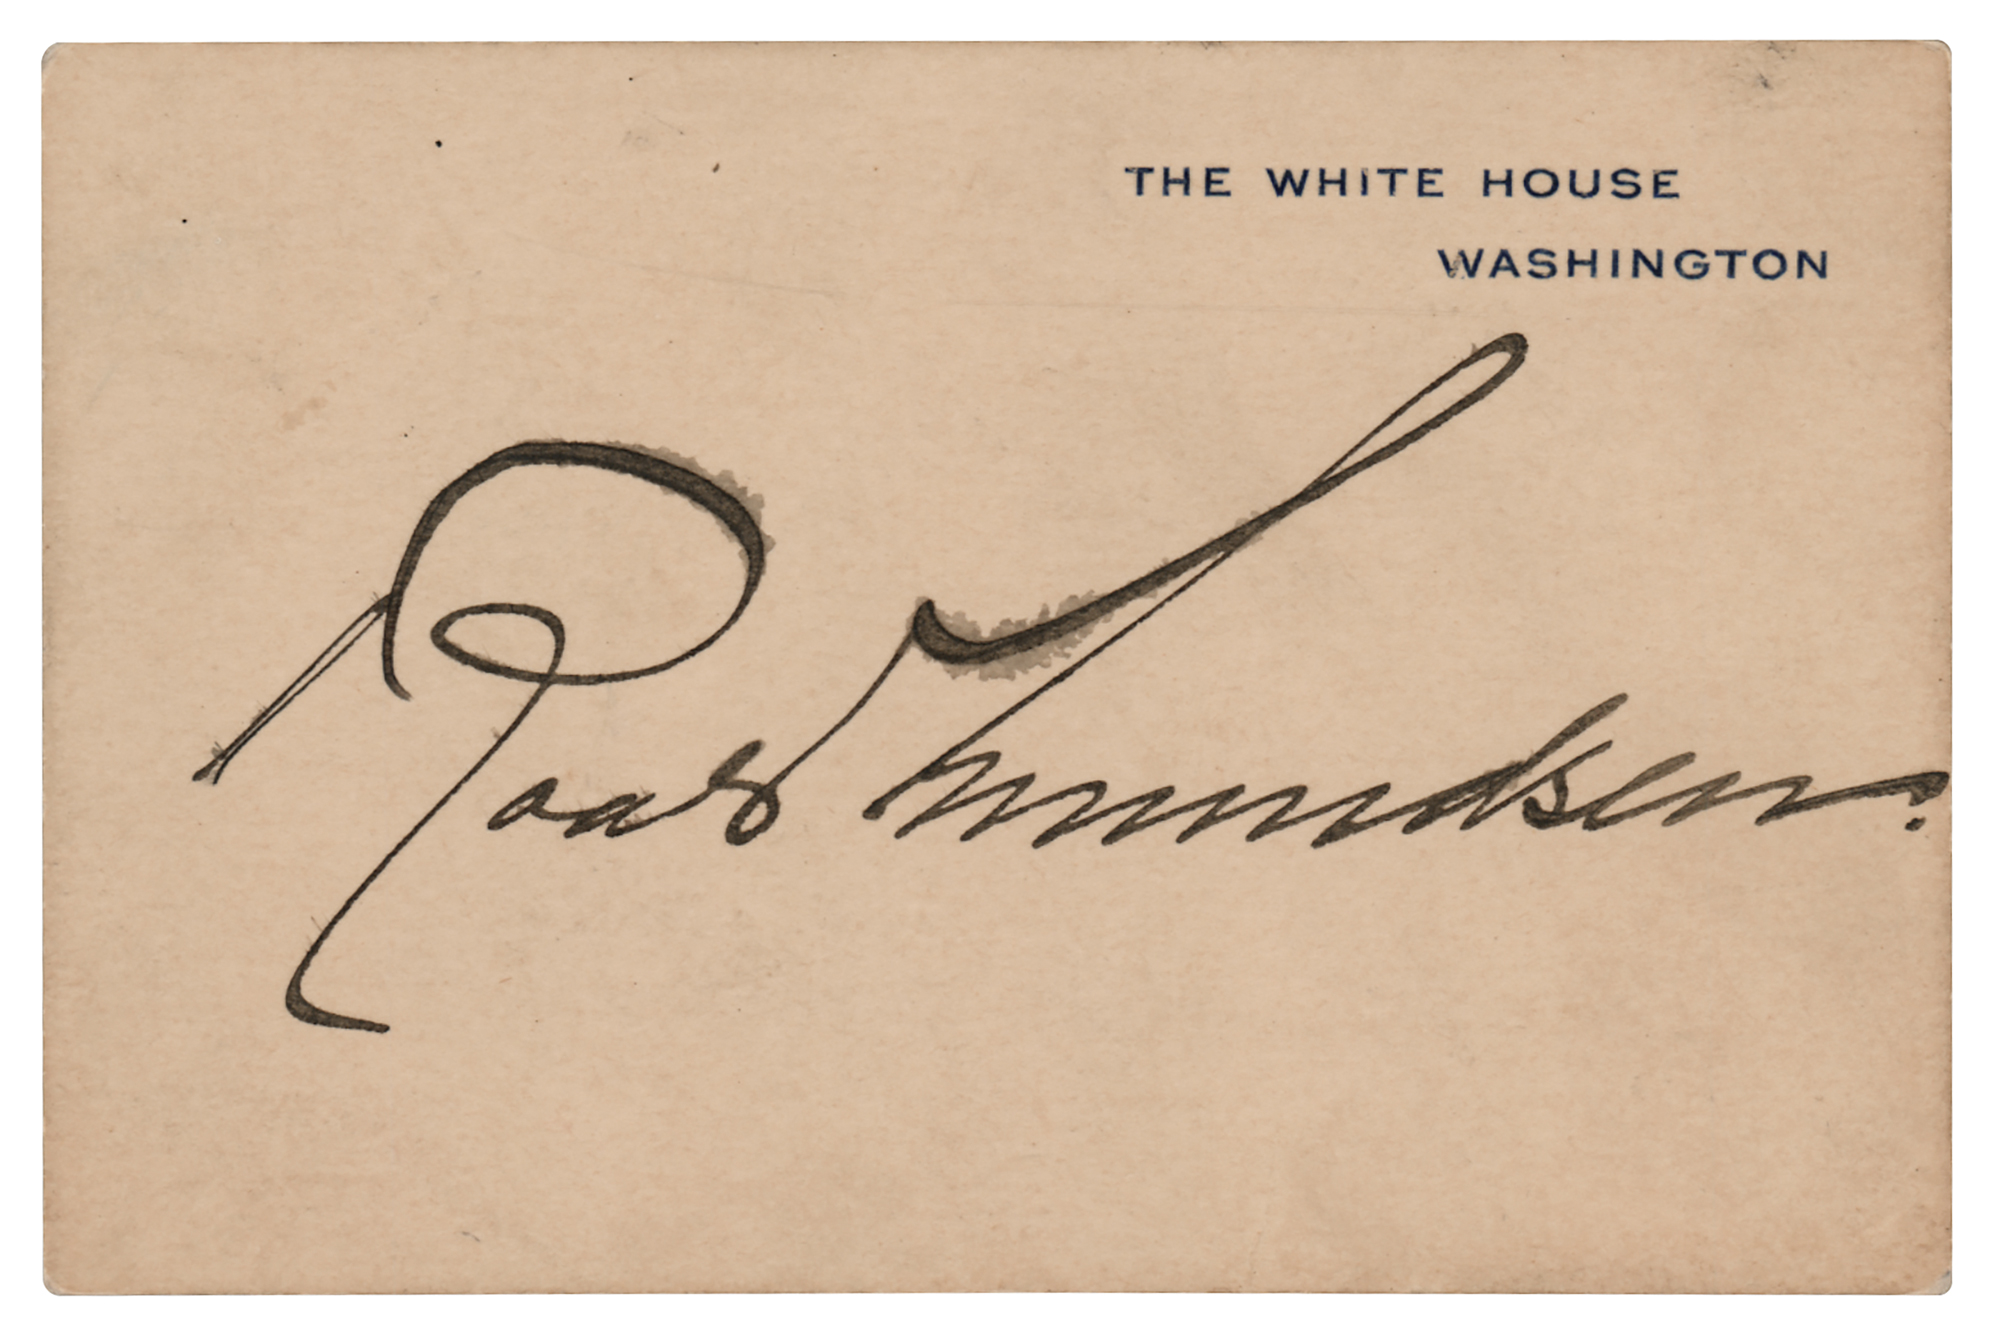 THE WHITE HOUSE
WASHINGTON
Roald Amundsen.